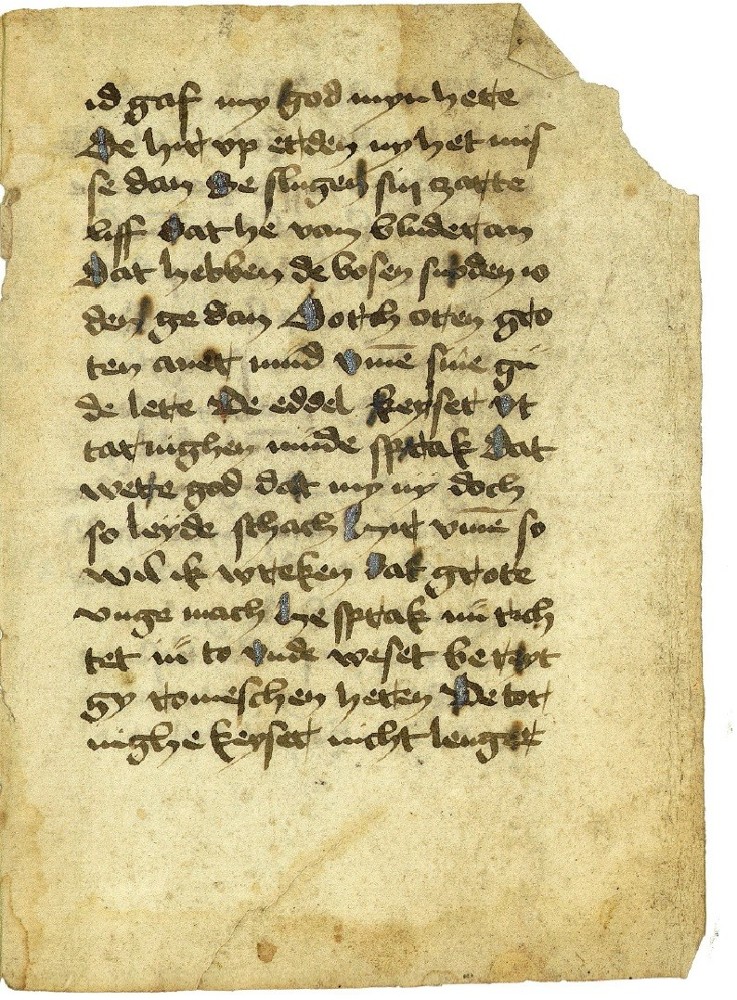 id gaf my god myn here
De hir vp erden ny het mis
se dan De slugen sin zarte
liff Dat he van bluder an
Dat hebben de bosen ioden
den ge dan Dorch oren gro
ten auer mud vm̄e sine gu
de lere De eddel keyser vt
tarnighen mūde sprak Dat
wette god dat my ny doch
so leyde schach hir vm̄e so
wil ik wreken Dat grote
vnge mach he sprak nu rich
tet iu to vnde weset bereyt
gy romeschen heren De tor
nighe keyser nicht lenger